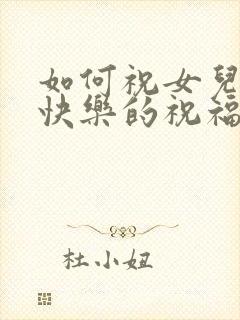 如何祝女兒
快樂的祝福
杜小妞